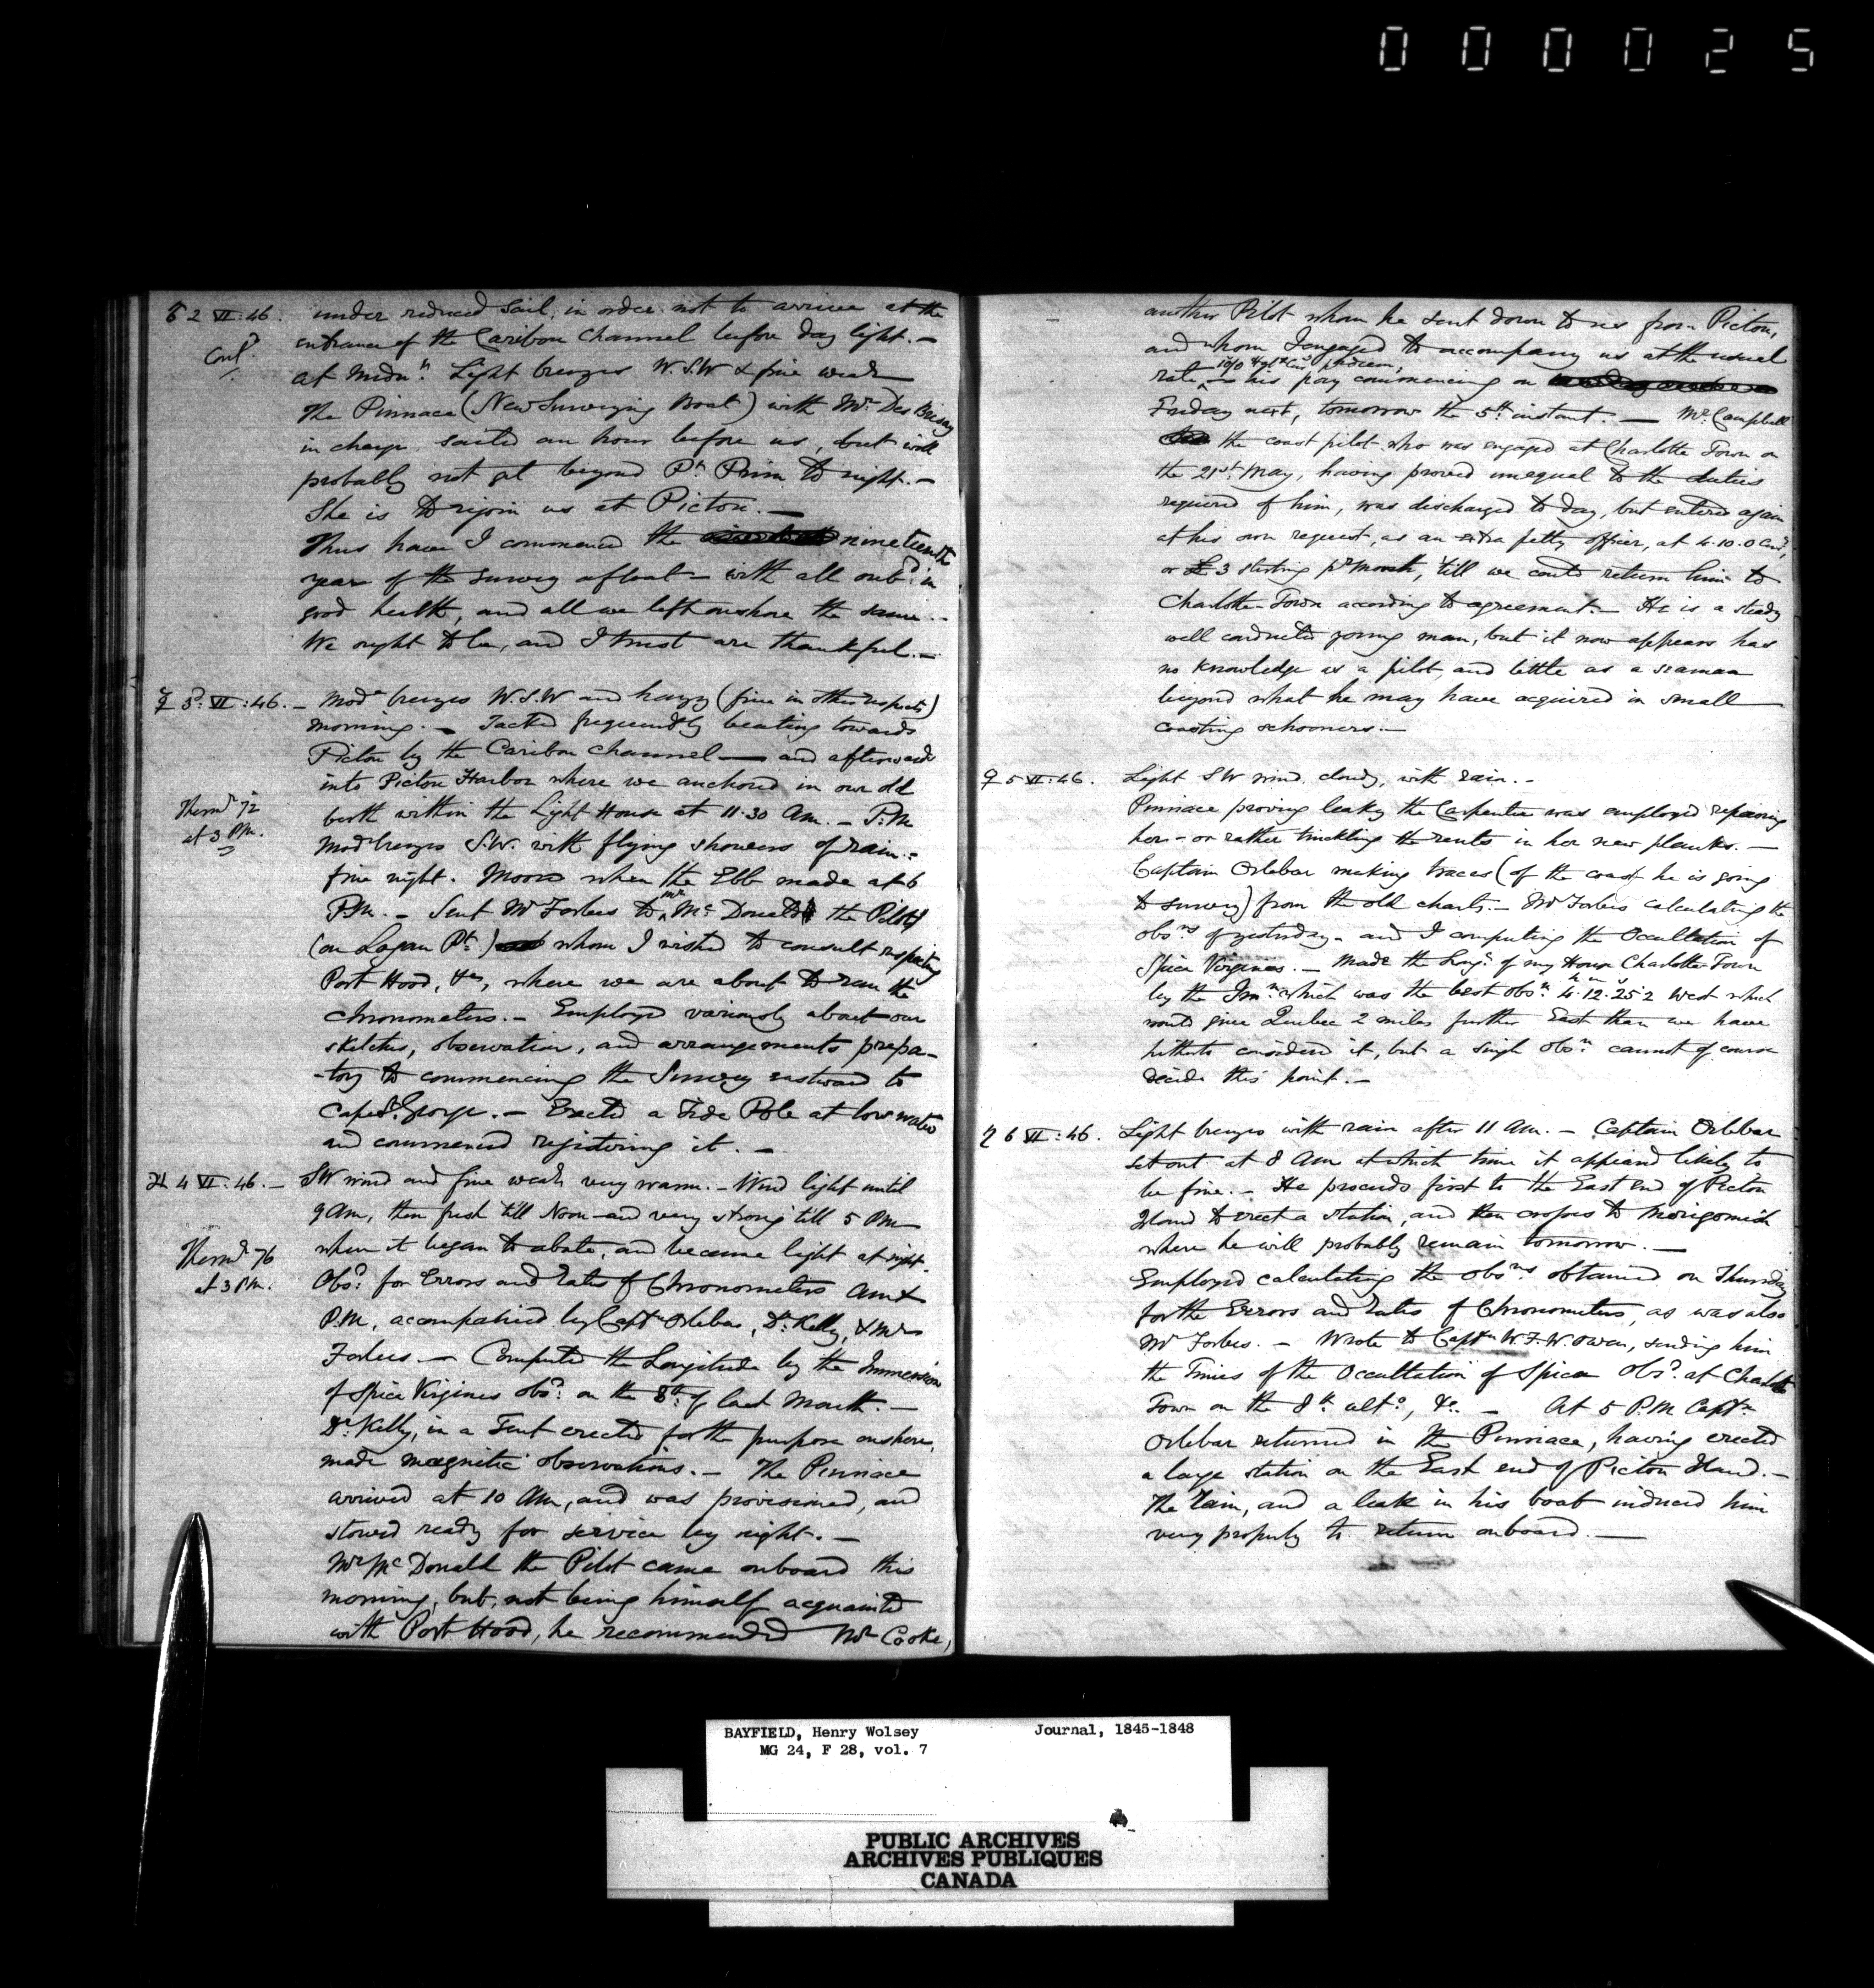 000025
♂ 2 VI: 46. under reduced sail, in order not to arrive at the
Cont.d entrance of the Caribou Channel before day light. –
at Midn.t Light breezes W.S.W & fine weath
The Pinnace (New Surveying Boat) with Mr. Des Brisay
in charge, sailed an hour before us, but will
probably not get beyond P.t Prim to night. –
She is to rejoin us at Pictou. —
Thus have I commenced the nineteenth
year of the survey afloat – with all onb.d in
good health, and all we left onshore the same. –
We ought to be, and I trust are thankful. –
☿ 3.d VI: 46. – Mod.e breezes W.S.W and hazy (fine in other respects)
morning. – Tacked frequently beating towards
Pictou by the Caribou Channel — and afterwards
into Pictou Harbor where we anchored in our old
Therm.r 72 berth within the Light House at 11.30 Am. – P.M
at 3 PM. Mod breezes S.W. with flying showers of rain. –
fine night. Moored when the Ebb made at 6
P.M. – Sent Mr Forbes to Mr McDonald the Pilot
(on Logan Pt.) whom I wished to consult respecting
Port Hood, &c, where we are about to run the
Chronometers. – Employed variously about our
sketches, observation, and arrangements prepa-
-tory to commencing the Survey eastward to
Cape St. George. – Erected a Tide Pole at low water
and commenced registering it. –
♃ 4 VI: 46. – SW wind and fine weath very warm. – Wind light until
9 Am, then fresh till Noon – and very strong till 5 PM
Therm.r 76 when it began to abate, and became light at night.
at 3 PM. Obs.d for Errors and Rates of Chronometers Am &
P.M, accompanied by Captn Orlebar, Dr. Kelly, & Mr
Forbes. — Computed the Longitude by the Immersion
of Spica Virginis obs.d on the 8th of last Month. —
Dr. Kelly, in a Tent erected for the purpose onshore,
made magnetic observations. – The Pinnace
arrived at 10 Am, and was provisioned, and
stowed ready for service by night. –
Mr McDonald the Pilot came onboard this
morning, but, not being himself acquainted
with Port Hood, he recommended Mr Cooke,
another Pilot whom he sent down to us from Pictou,
and whom I engaged to accompany us at the usual
rate, – his pay commencing on
Friday next, tomorrow the 5th instant. — Mr. Campbell
the coast pilot who was engaged at Charlotte Town on
the 21st May, having proved unequal to the duties
required of him, was discharged to day, but entered again
at his own request, as an extra petty officer, at 4.10.0 Curr.y,
or £3 sterling pr Month, 'till we could return him to
Charlotte-Town according to agreement. – He is a steady
well conducted young man, but it now appears has
no knowledge as a pilot, and little as a seaman
beyond what he may have acquired in small
coasting schooners. –
♀ 5 VI: 46. Light SW wind, cloudy, with rain. –
Pinnace proving leaky the Carpenter was employed repairing
her – or rather the rents in her new planks. –
Captain Orlebar making traces (of the coast he is going
to survey) from the old charts. – Mr Forbes calculating the
obs.ns of yesterday – and I computing the Occultation of
Spica Virginis. – Made the Long. of my House Charlotte-Town
by the Imn. which was the best obs.n 4h.12m.25s.2 West which
would give Quebec 2 miles further East than we have
hitherto considered it, but a single obs.n cannot of course
decide this point. –
♄ 6 VI: 46. Light breezes with rain after 11 Am. – Captain Orlebar
set out at 8 Am at which time it appeared likely to
be fine. – He proceeds first to the East end of Pictou
Island to erect a station, and then crosses to Merigomish
where he will probably remain tomorrow. —
Employed calculating the obs.ns obtained on Thursday
for the Errors and Rates of Chronometers, as was also
Mr Forbes. – Wrote to Captn W.F.W. Owen, sending him
the Times of the Occultation of Spica obs.d at Charlotte
Town on the 8th ult.o, &c. – At 5 P.M Captn
Orlebar returned in the Pinnace, having erected
a large station on the East end of Pictou Island. –
The Rain, and a leak in his boat induced him
very properly to return onboard. —
BAYFIELD, Henry Wolsey Journal, 1845-1848
MG 24, F 28, vol. 7
PUBLIC ARCHIVES
ARCHIVES PUBLIQUES
CANADA